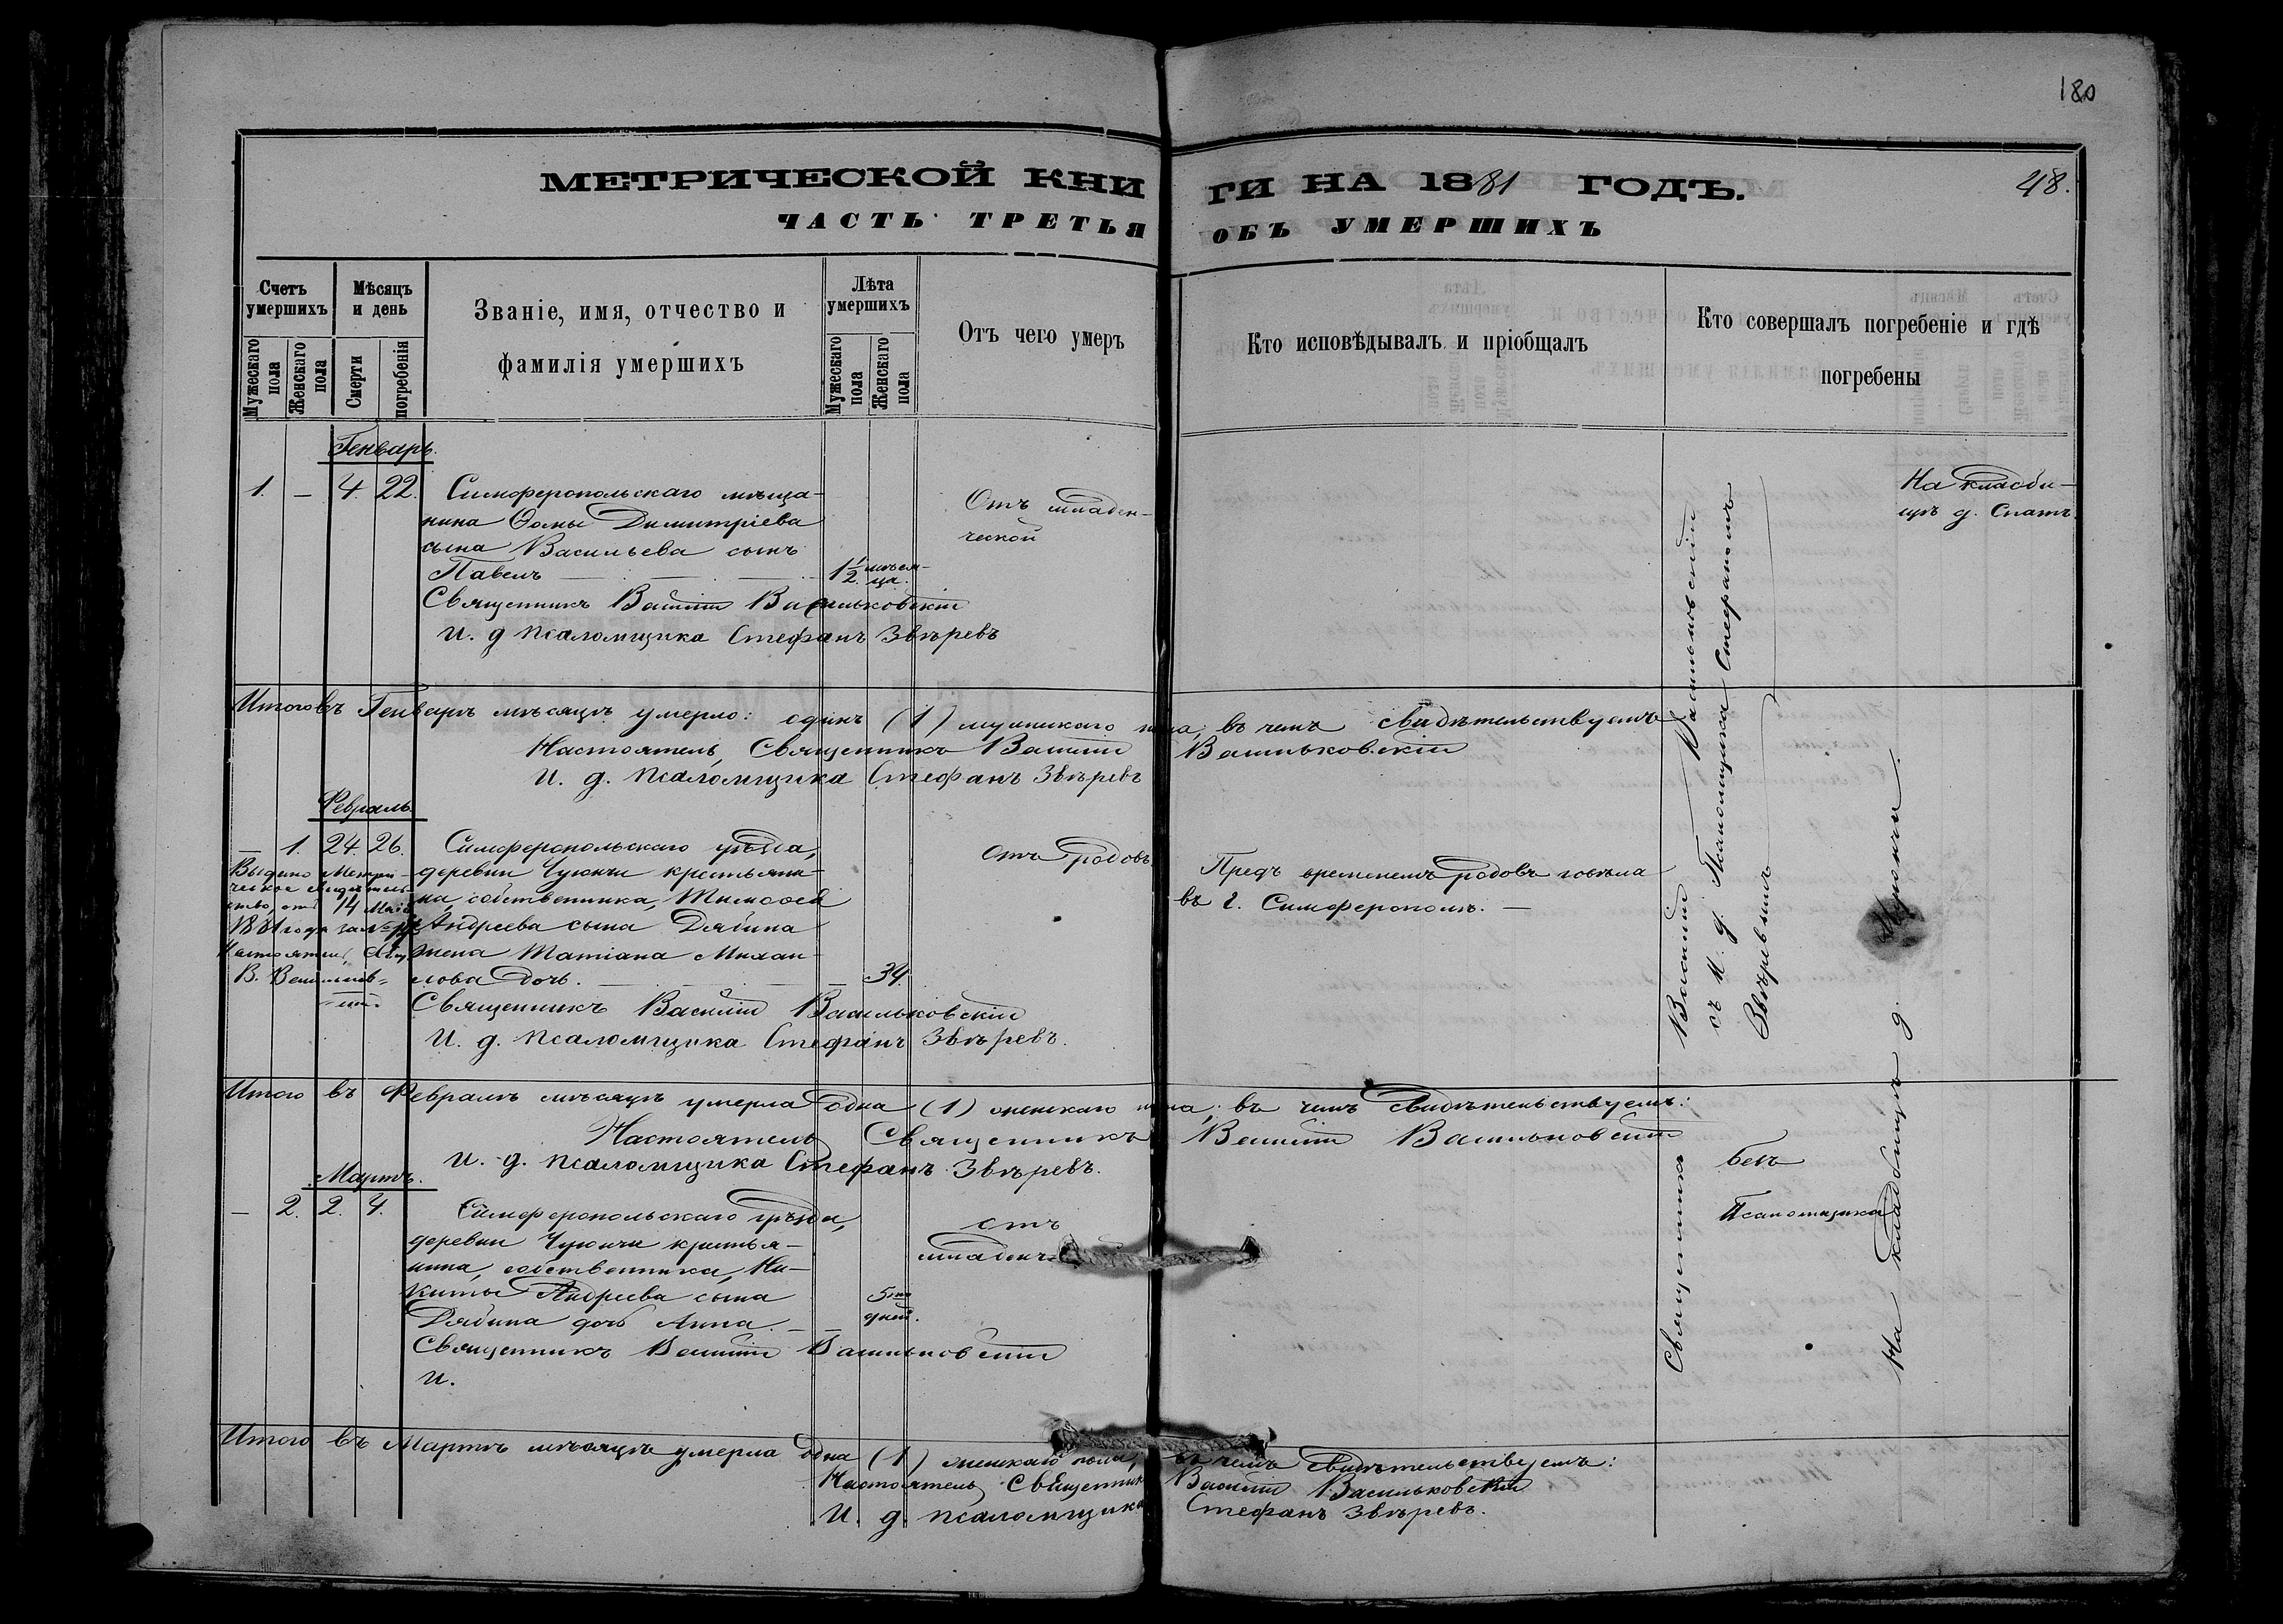 180
МЕТРИЧЕСКОЙ КНИГИ НА 1881 ГОДЪ.
48.
ЧАСТЬ ТРЕТЬЯ ОБЪ УМЕРШИХЪ
Счетъ умершихъ
Мужескаго пола
Женскаго пола
Мѣсяцъ и день
Смерти
погребенія
Званіе, имя, отчество и
фамилія умершихъ
Лѣта умершихъ
Мужескаго пола
Женскаго пола
Отъ чего умеръ
Кто исповѣдывалъ и пріобщалъ
Кто совершалъ погребеніе и гдѣ
погребены
Генварь.
1. — 4. 22.
Симферопольскаго мѣща-
нина Ѳомы Димитріева
сына Васильева сынъ
Павелъ
1 1/2 мѣся-
ца.
Отъ младен-
ческой
На кладби-
щѣ д. Спатъ.
Священникъ Василій Васильковскій
И. д псаломщика Стефанъ Звѣревъ
Итого въ Генварѣ мѣсяцѣ умерло: одинъ (1) мужскаго пола, въ чемъ свидѣтельствуемъ
Настоятель, Священникъ Василій Васильковскій
И. д. псаломщика Стефанъ Звѣревъ
Февраль.
— 1. 24. 26.
Симферопольскаго уѣзда,
деревни Чуюнчи крестьяни-
на, собственника, Тимоѳея
Андреева сына Дябина
жена Татіана Михаи-
лова дочь. — 34.
Отъ родовъ
Предъ временемъ родовъ говѣла
въ г. Симферополѣ. —
Выдано Метри-
ческое свидѣтель-
ство, отъ 14 Мая
1881 года за №
Настоятель, Свящ.
В. Васильков-
скій
Священникъ Василій Васильковскій
И. д. псаломщика Стефанъ Звѣревъ.
Итого въ Февралѣ мѣсяцѣ умерла одна (1) женскаго пола; въ чемъ свидѣтельствуемъ:
Настоятель Священникъ Василій Васильковскій
И. д. псаломщика Стефанъ Звѣревъ.
Мартъ.
— 2. 2. 4.
Симферопольскаго уѣзда,
деревни Чуюнчи крестья-
нина, собственника, Ни-
киты Андреева сына
Дябина дочь Анна. —
5ти
дней.
отъ
младенч.
Священникъ Василій Васильковскій
И.
Священникъ Василій Васильковскій
съ И. д. Псаломщика Стефаномъ
Звѣревымъ
безъ
Псаломщика
На кладбищѣ д.
Итого въ Мартѣ мѣсяцѣ умерла одна (1) женскаго пола, въ чемъ свидѣтельствуемъ:
Настоятель, Священникъ Василій Васильковскій
И. д. псаломщика Стефанъ Звѣревъ.